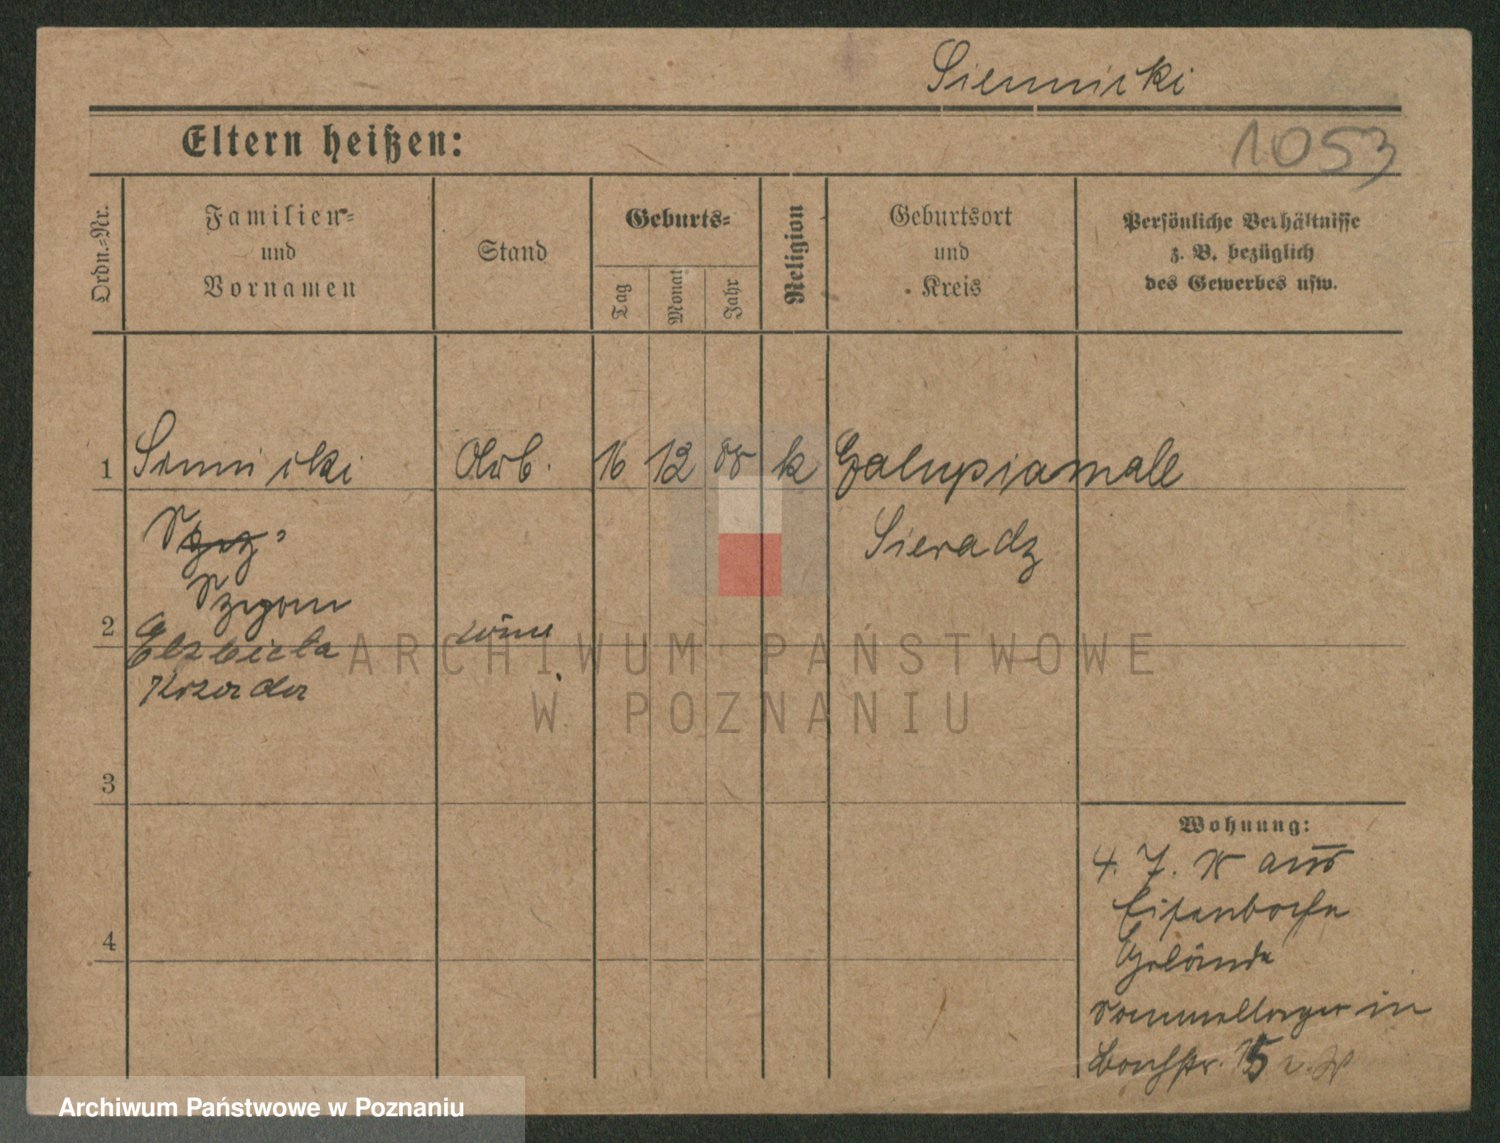 Siennicki
Eltern heißen:
1053
Ordn.-Nr.
Familien-
und
Vornamen
Stand
Geburts-
Tag
Monat
Jahr
Religion
Geburtsort
und
Kreis
Persönliche Verhältnisse
z. B. bezüglich
des Gewerbes usw.
1 Siennicki Arb. 16 12 88 k
Sieradz
2
Elzbieta
3
Wohnung:
4. 7. aus
Eisenbahn
Gelände
Sammellager in
4
ARCHIWUM PAŃSTWOWE
W POZNANIU
Archiwum Państwowe w Poznaniu